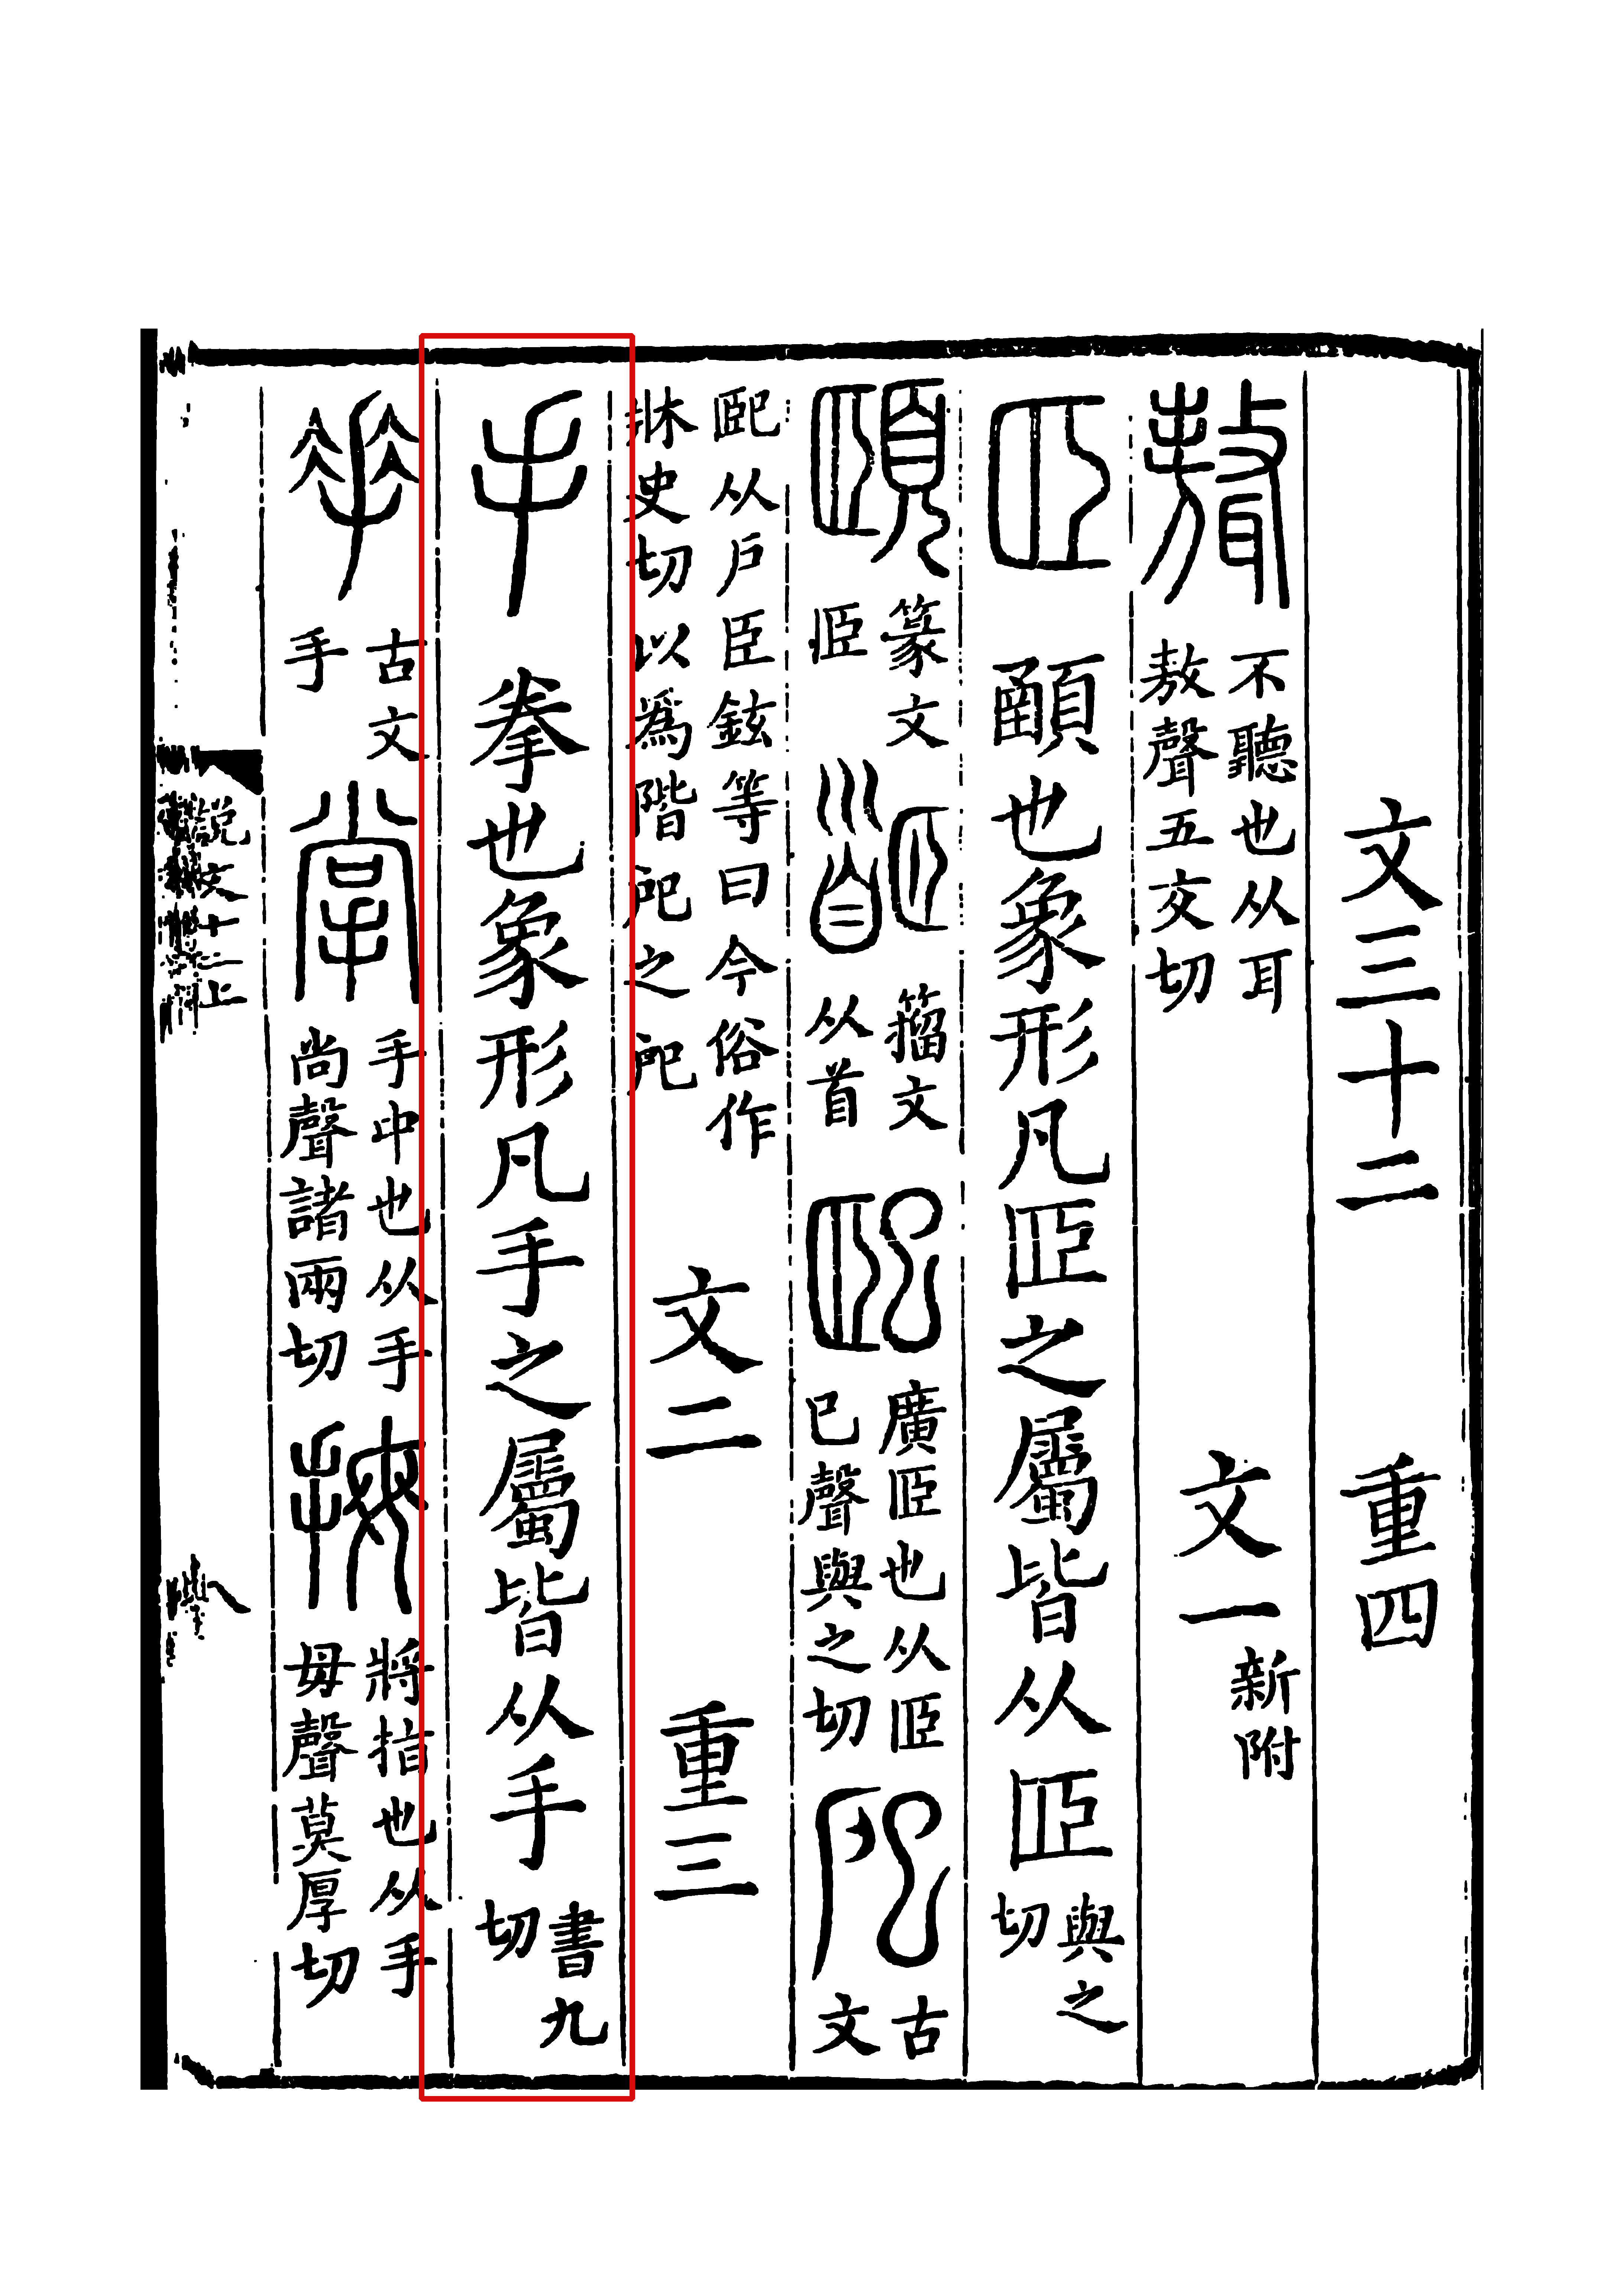 文三十二 重四
聱 不聽也从耳敖聲五交切 文一 新附
𦣞 顄也象形凡𦣞之屬皆从𦣞 與之切
頤 篆文𦣞 𩠡 籒文从首 𦣠 廣𦣞也从𦣞巳聲與之切 𢨪 古文
𦣠从戶臣鉉等曰今俗作牀史切以爲階戺之戺 文二 重三
手 拳也象形凡手之屬皆从手 書九切
𠂿 古文手 掌 手中也从手尚聲諸兩切 拇 將指也从手毋聲莫厚切
說文十二上
八